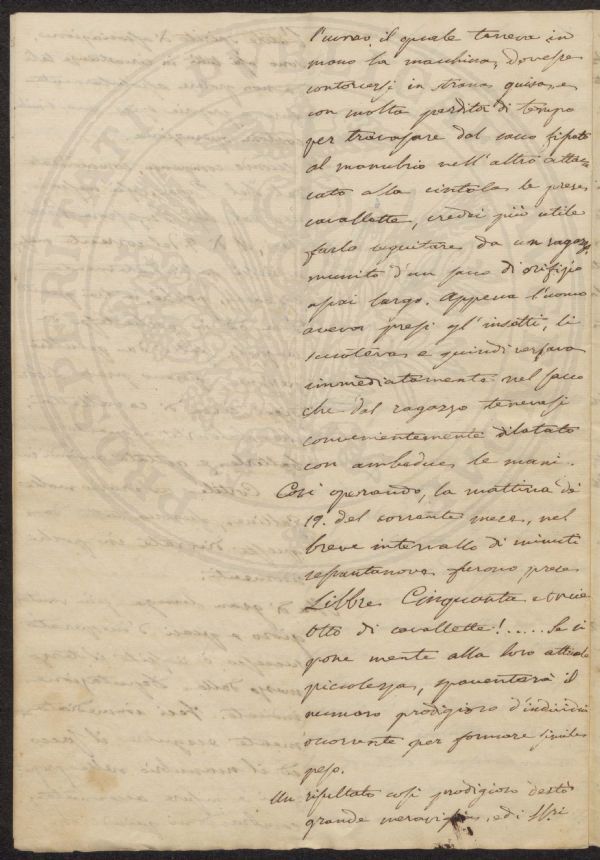 l'uomo il quale teneva in
mano la macchina, dovesse
contorcersi in strana guisa, e
con molta perdita di tempo
per travasare dal sacco fissato
al manubrio nell'altro attac-
cato alla cintola le prese
cavallette, credei più utile
farlo seguitare da un ragazzo
munito d'un sacco di orifizio
assai largo. Appena l'uomo
aveva presi gl'insetti, li
scuoteva e quindi versava
immediatamente nel sacco
che dal ragazzo tenevasi
convenientemente dilatato
con ambedue le mani.
Così operando, la mattina de
19. del corrente mese, nel
breve intervallo di minuti
sessantanove furono prese
Libbre Cinquanta e oncie
Otto di cavallette!..... Se si
pone mente alla loro attuale
picciolezza, spaventerà il
numero prodigioso d'individui
occorrente per formare simile
peso.
Un risultato così prodigioso destò
grande meraviglia, ed i